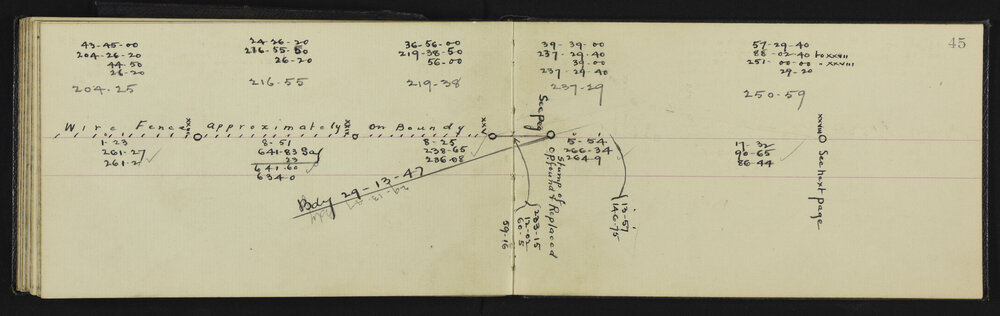 45
43-45-00
204-26-20
44-50
26-20
204-25
24-26-20
26-20
216-55
36-56-00
219-38-50
56-00
219-38
39-39-00
237-29-40
39-00
237-29-40
237-29
57-29-40
88-02-40 to xxvii
251-00-00 - xxviii
29-20
250-59
Wire Fence approximately on Boundy
xxv
See pag
xxviii
See next page
1-23
261-27
261-2
8-51
641-83
23
641-60
634-0
8-25
238-65
236-08
5-54
266-34
264-9
17-32
90-65
86-44
Bdy 29-13-47
29-13-47
Bdy
Stump of
op found & Replaced
233-15
12-02
60-5
59-16
13-57
146-75